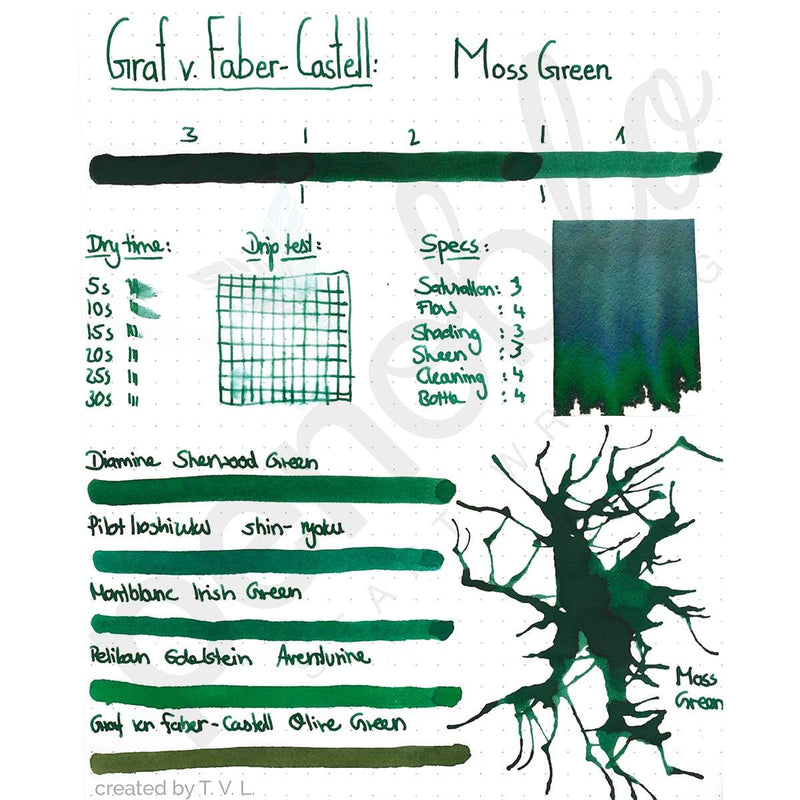 Graf v. Faber-Castell: Moss Green
3 1 2 1 1
Dry time: Drip test: Specs:
5s
10s
15s
20s
25s
30s
Saturation: 3
Flow : 4
Shading : 3
Sheen : 3
Cleaning : 4
Bottle : 4
Diamine Sherwood Green
Pilot Iroshizuku shin-ryoku
Montblanc Irish Green
Pelikan Edelstein Aventurine
Graf von Faber-Castell Olive Green
Moss
Green
penoblo
created by T. V. L.